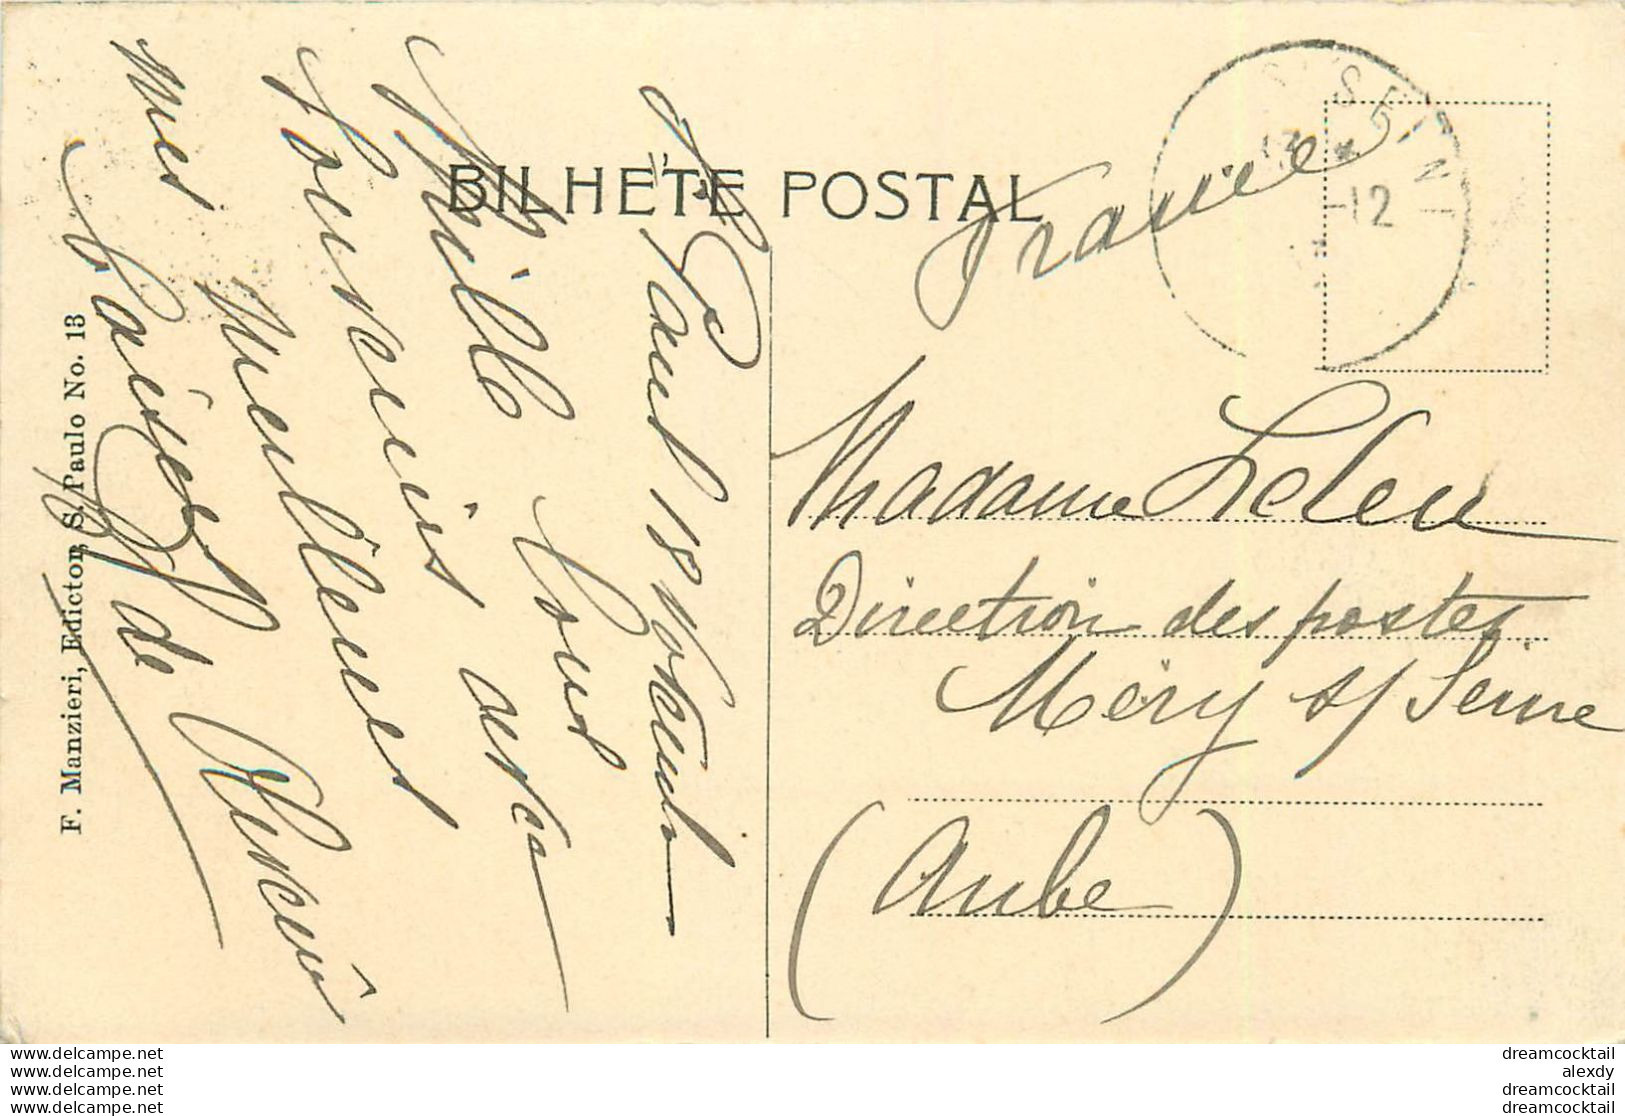 BILHETE POSTAL
France
S/ SEINE
13 *
-12
S. Paul 18 Novembre
Mille Cous
Souvenirs avec
meilleurs
mes baisers de
F. Manzieri, Edictor, S. Paulo No. 13
Madame Leleu
Direction des postes
Méry s/ Seine
(Aube)
www.delcampe.net
www.delcampe.net
www.delcampe.net
www.delcampe.net
dreamcocktail
alexdy
dreamcocktail
dreamcocktail